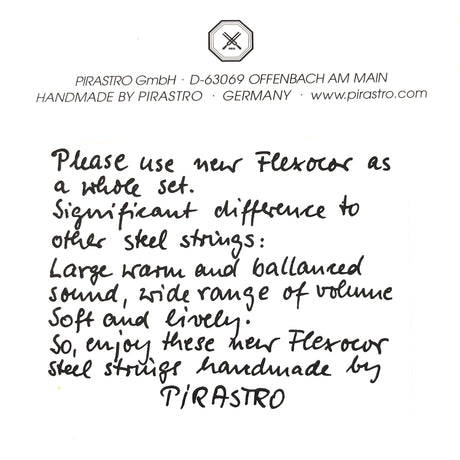 PIRASTRO GmbH · D-63069 OFFENBACH AM MAIN
HANDMADE BY PIRASTRO · GERMANY · www.pirastro.com
Please use new Flexocor as
a whole set.
Significant difference to
other steel strings:
Large warm and ballanced
sound, wide range of volume
Soft and lively.
So, enjoy these new Flexocor
steel strings handmade by
PiRASTRO